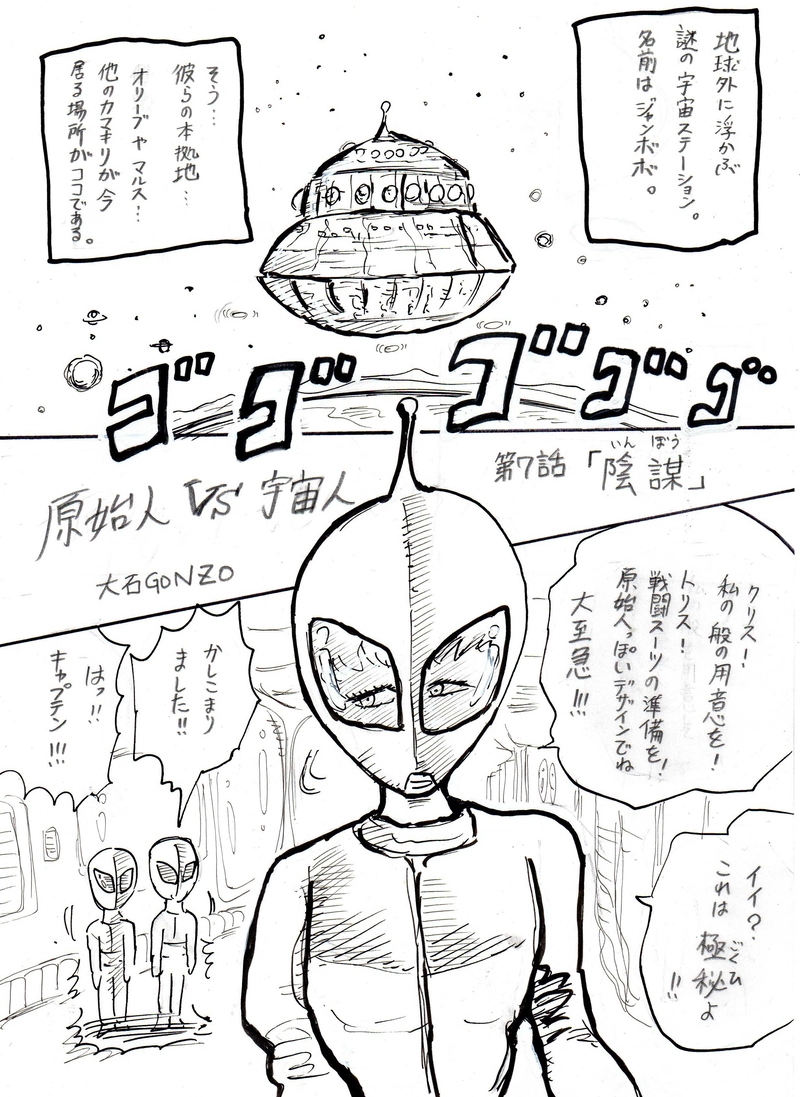 地球外に浮かぶ
謎の宇宙ステーション。
名前はジャンボボ。
そう…
彼らの本拠地…
オリーブやマルス…
他のカマキリが今
居る場所がココである。
ゴゴゴゴゴ
第7話「陰謀」
いんぼう
原始人VS宇宙人
大石GONZO
クリス!
私の般の用意を!
トリス!
戦闘スーツの準備を!
原始人っぽいデザインでね
大至急!!!
かしこまり
ました!!
はっ!!
キャプテン!!!
イイ?
これは極秘よ!!
ごくひ